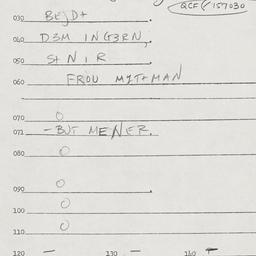 QCF(/157030
030 BEJD+
040 D3M INGERN,
050 S+ N I R
060 FROU MYT+MAN
070 O
071 -BUT MENER.
080 O
090 O
100 O
110 O
120 — 130 — 140